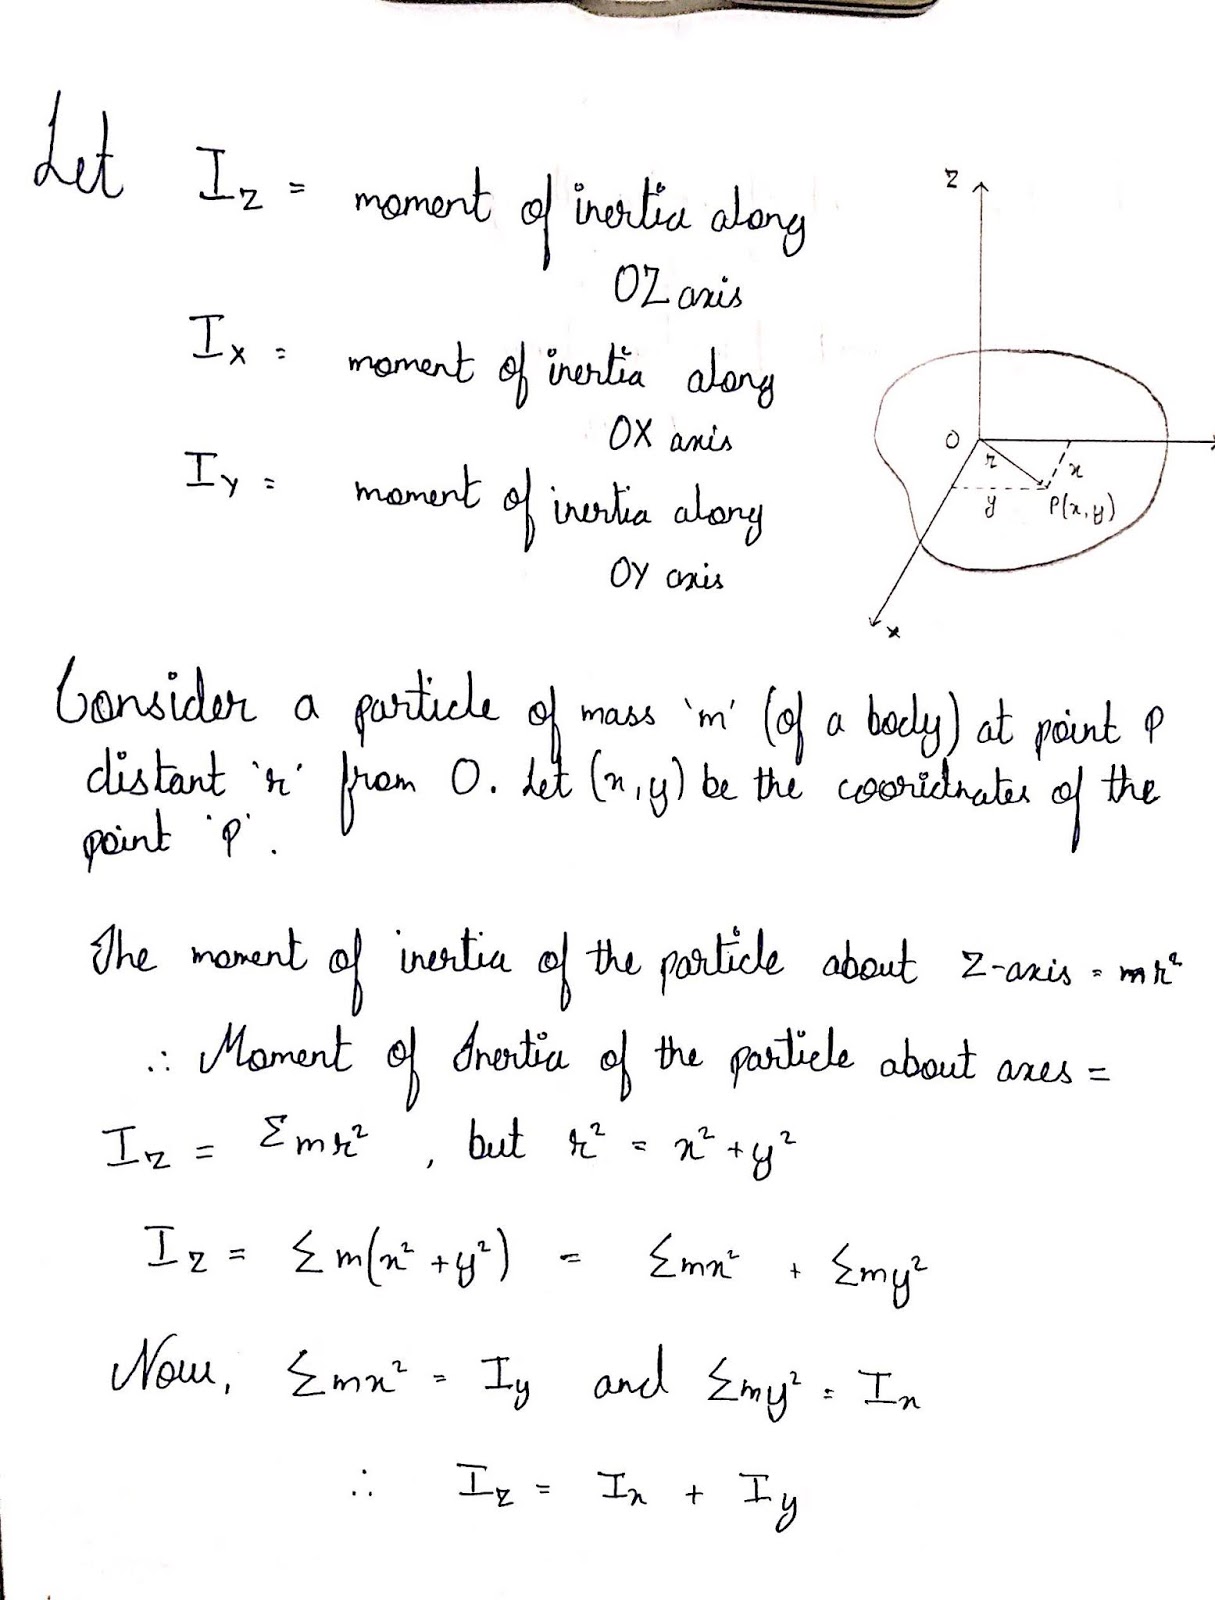 Let I_z = moment of inertia along
OZ axis
I_x = moment of inertia along
OX axis
I_y = moment of inertia along
OY axis
z
O
r
x
y
P(x,y)
x
Consider a particle of mass 'm' (of a body) at point P
distant 'r' from O. Let (x,y) be the cooridnates of the
point 'P'.
The moment of inertia of the particle about Z-axis = mr²
∴ Moment of Inertia of the particle about axes =
I_z = Σmr² , but r² = x² + y²
I_z = Σm(x² + y²) = Σmx² + Σmy²
Now, Σmx² = I_y and Σmy² = I_x
∴ I_z = I_x + I_y